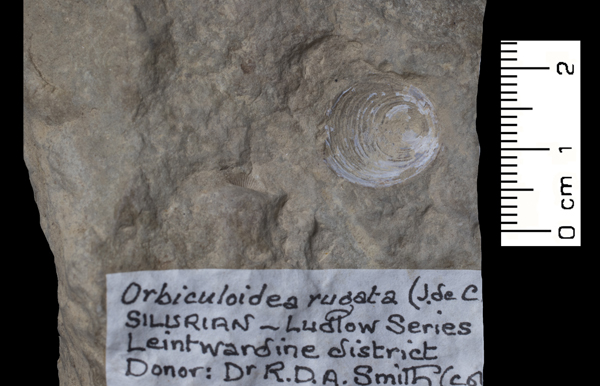 Orbiculoidea rugata (J.de C
SILURIAN – Ludlow Series
Leintwardine district
Donor: Dr R.D.A. Smith (C.
2
1
0 cm